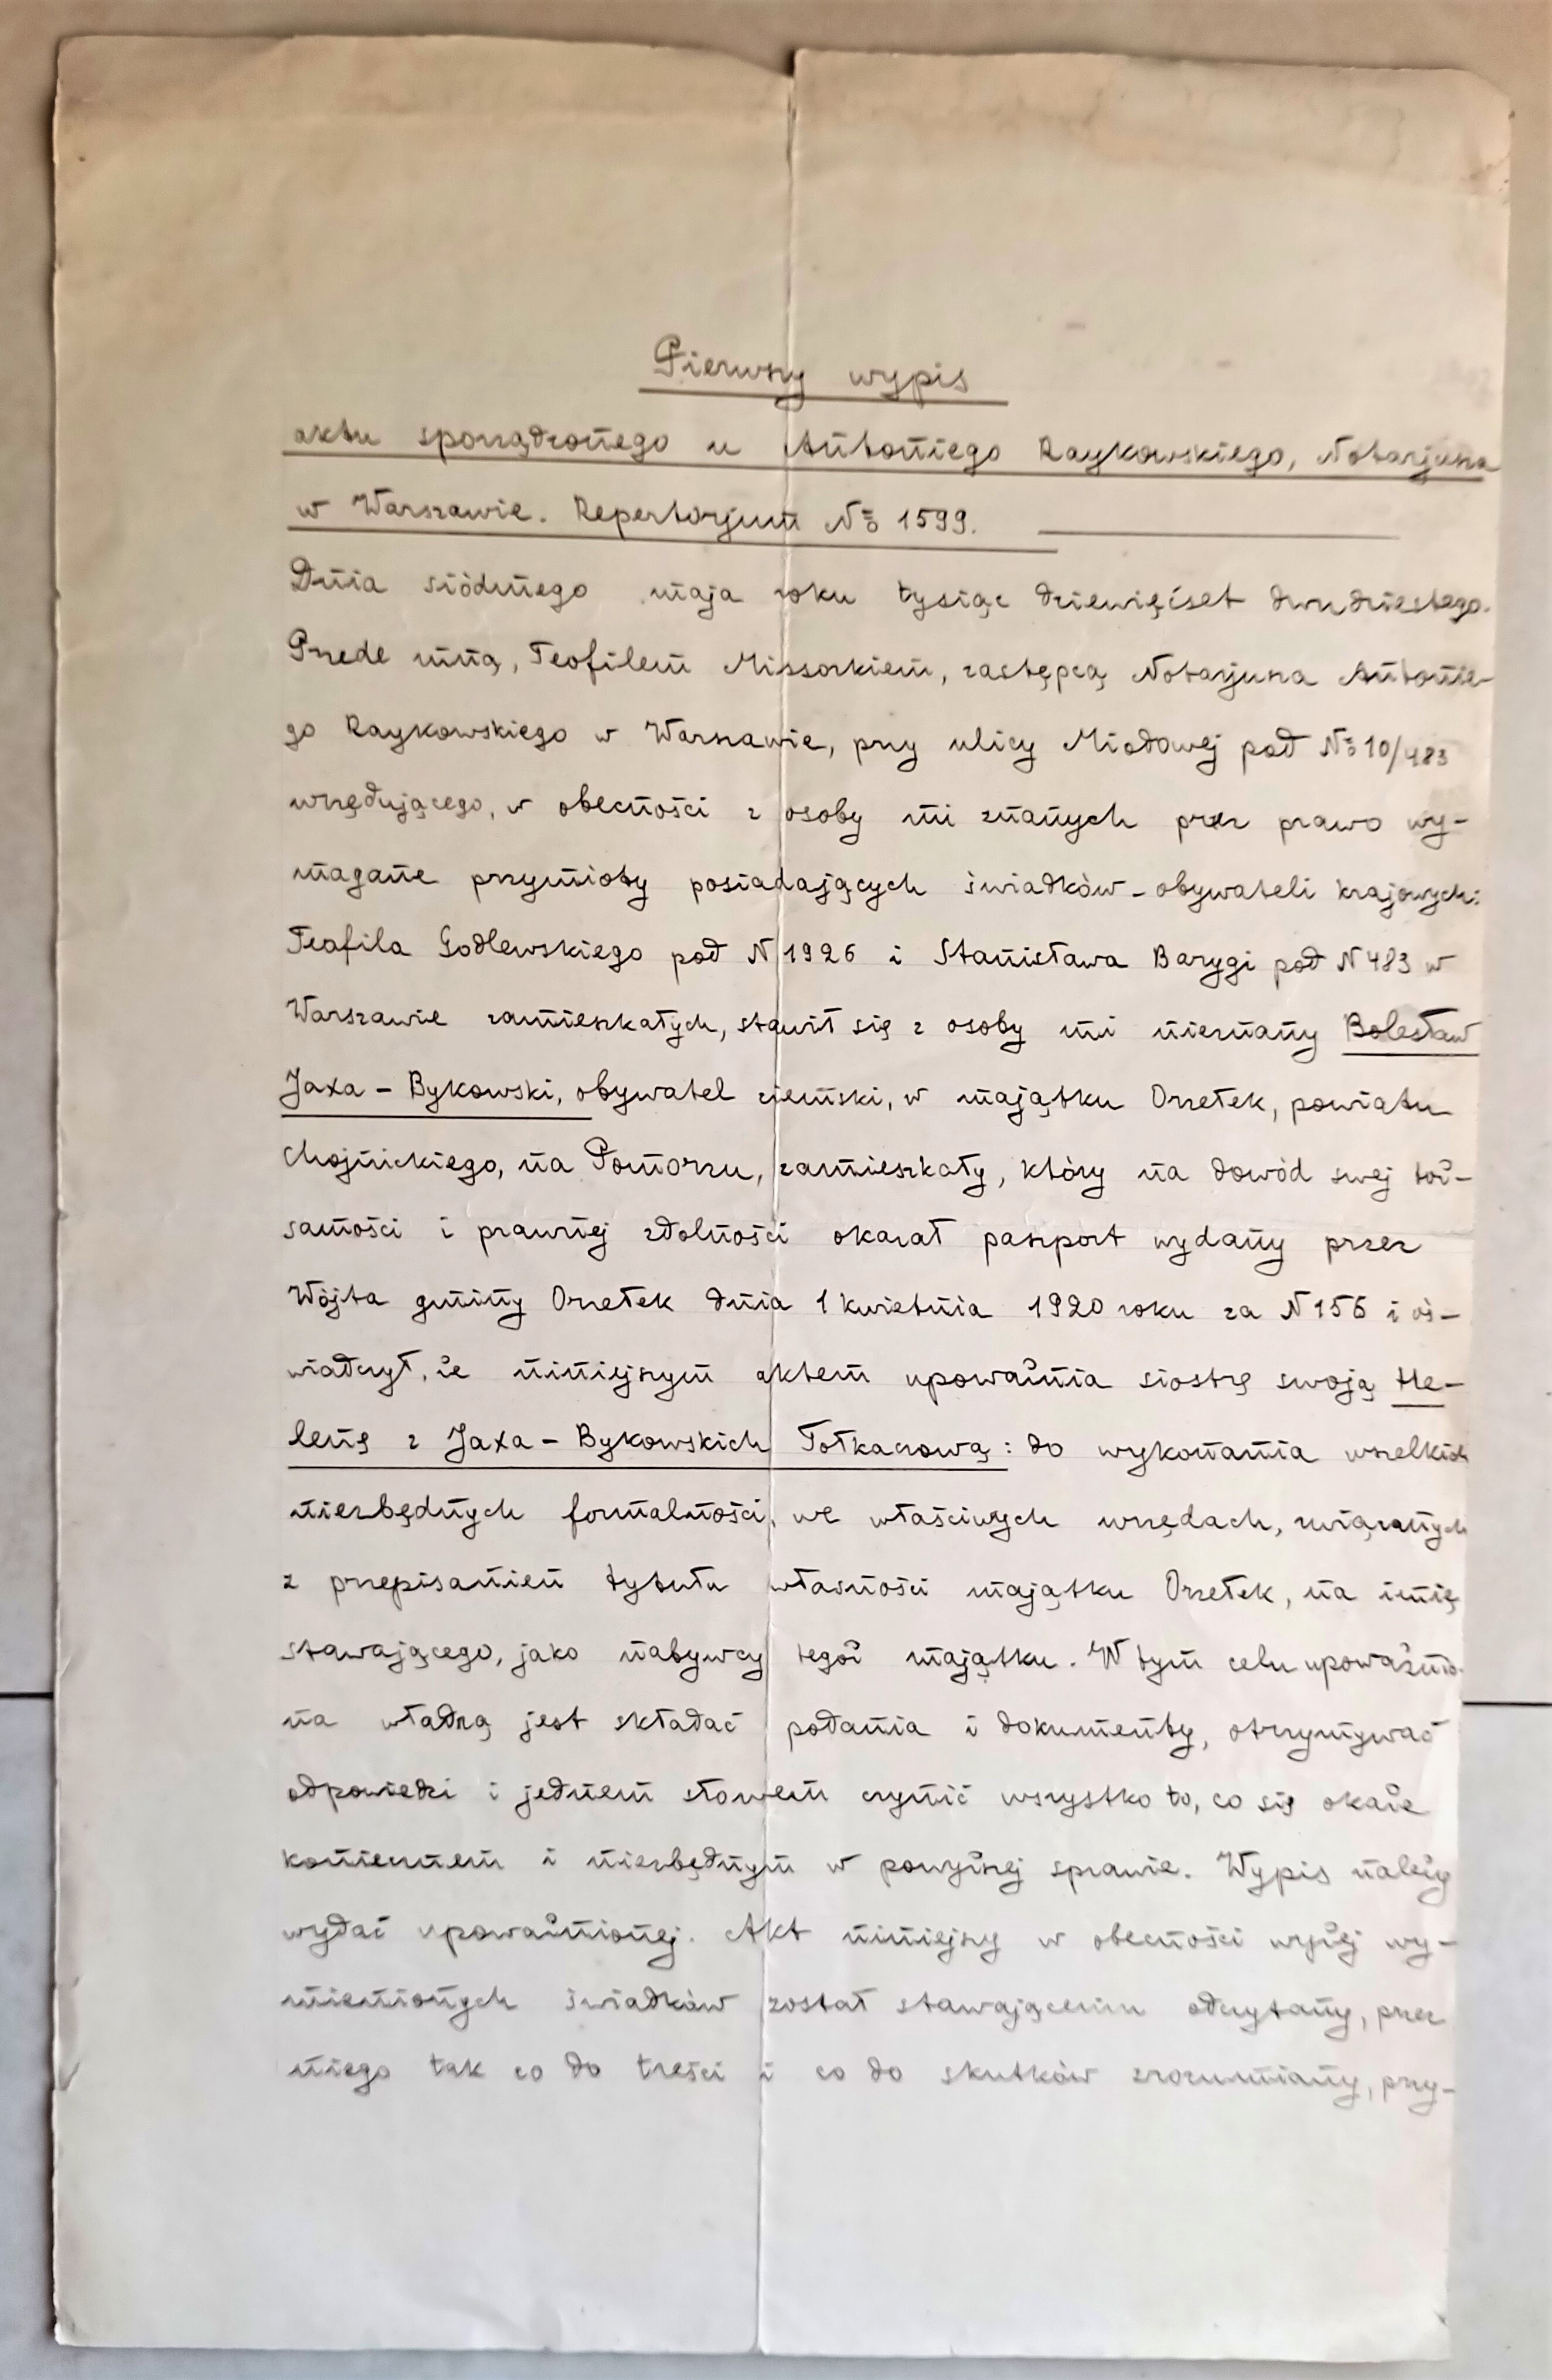 Pierwszy wypis
aktu sporządzonego u Antoniego Raykowskiego, Notarjusza
w Warszawie. Repertorjum № 1599.
Dnia siódmego maja roku tysiąc dziewięćset dwudziestego.
Przede mną, Teofilem Missorkiem, zastępcą Notarjusza Antonie-
go Raykowskiego w Warszawie, przy ulicy Miodowej pod № 10/483
urzędującego, w obecności z osoby mi znanych przez prawo wy-
magane przymioty posiadających świadków - obywateli krajowych:
Teofila Godlewskiego pod N 1926 i Stanisława Barygi pod N 483 w
Warszawie zamieszkałych, stawił się z osoby mi nieznany Bolesław
Jaxa - Bykowski, obywatel ziemski, w majątku Orzełek, powiatu
Chojnickiego, na Pomorzu, zamieszkały, który na dowód swej toż-
samości i prawnej zdolności okazał paszport wydany przez
Wójta gminy Orzełek dnia 1 kwietnia 1920 roku za N 156 i oś-
wiadczył, że niniejszym aktem upoważnia siostrę swoją He-
lenę z Jaxa - Bykowskich Tołkaczową: do wykonania wszelkich
niezbędnych formalności, we właściwych urzędach, związanych
z przepisaniem tytułu własności majątku Orzełek, na imię
stawającego, jako nabywcy tegoż majątku. W tym celu upoważnio-
na władną jest składać podania i dokumenty, otrzymywać
odpowiedzi i jednem słowem czynić wszystko to, co się okaże
koniecznem i niezbędnym w powyższej sprawie. Wypis należy
wydać upoważnionej. Akt niniejszy w obecności wyżej wy-
mienionych świadków został stawającemu odczytany, przez
niego tak co do treści i co do skutków zrozumiany, przy-